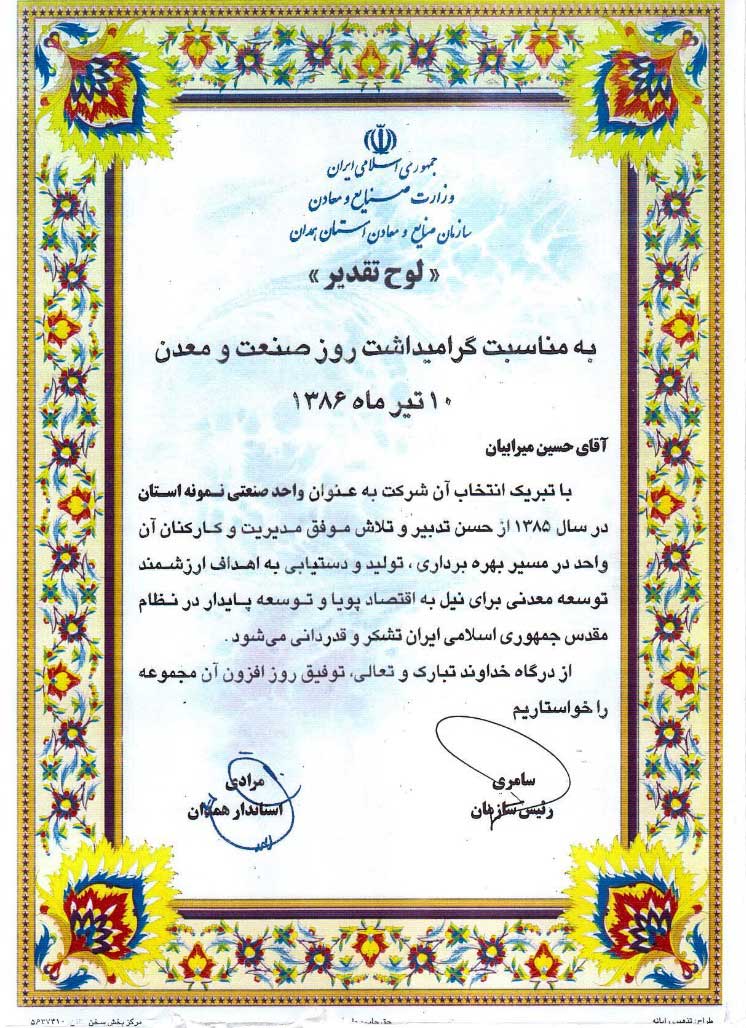 جمهوری اسلامی ایران
وزارت صنایع و معادن
سازمان صنایع و معادن استان همدان
« لوح تقدیر »
به مناسبت گرامیداشت روز صنعت و معدن
۱۰ تیر ماه ۱۳۸۶
آقای حسین میرابیان
با تبریک انتخاب آن شرکت به عنوان واحد صنعتی نمونه استان
در سال ۱۳۸۵ از حسن تدبیر و تلاش موفق مدیریت و کارکنان آن
واحد در مسیر بهره برداری ، تولید و دستیابی به اهداف ارزشمند
توسعه معدنی برای نیل به اقتصاد پویا و توسعه پایدار در نظام
مقدس جمهوری اسلامی ایران تشکر و قدردانی می‌شود .
از درگاه خداوند تبارک و تعالی، توفیق روز افزون آن مجموعه
را خواستاریم
سامری
رئیس سازمان
مرادی
استاندار همدان
مرکز پخش سخن